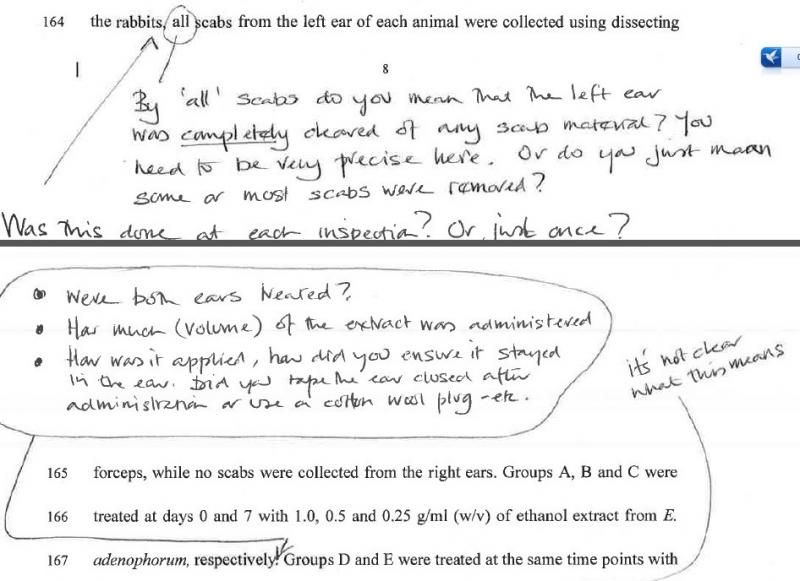 164 the rabbits, all scabs from the left ear of each animal were collected using dissecting
8
By 'all' scabs do you mean that the left ear
was completely cleared of any scab material? You
need to be very precise here. Or do you just mean
some or most scabs were removed?
Was this done at each inspection? Or just once?
• Were both ears treated?
• How much (volume) of the extract was administered
• How was it applied, how did you ensure it stayed
in the ear. Did you tape the ear closed after
administration or use a cotton wool plug - etc.
it's not clear
what this means
165 forceps, while no scabs were collected from the right ears. Groups A, B and C were
166 treated at days 0 and 7 with 1.0, 0.5 and 0.25 g/ml (w/v) of ethanol extract from E.
167 adenophorum, respectively. Groups D and E were treated at the same time points with